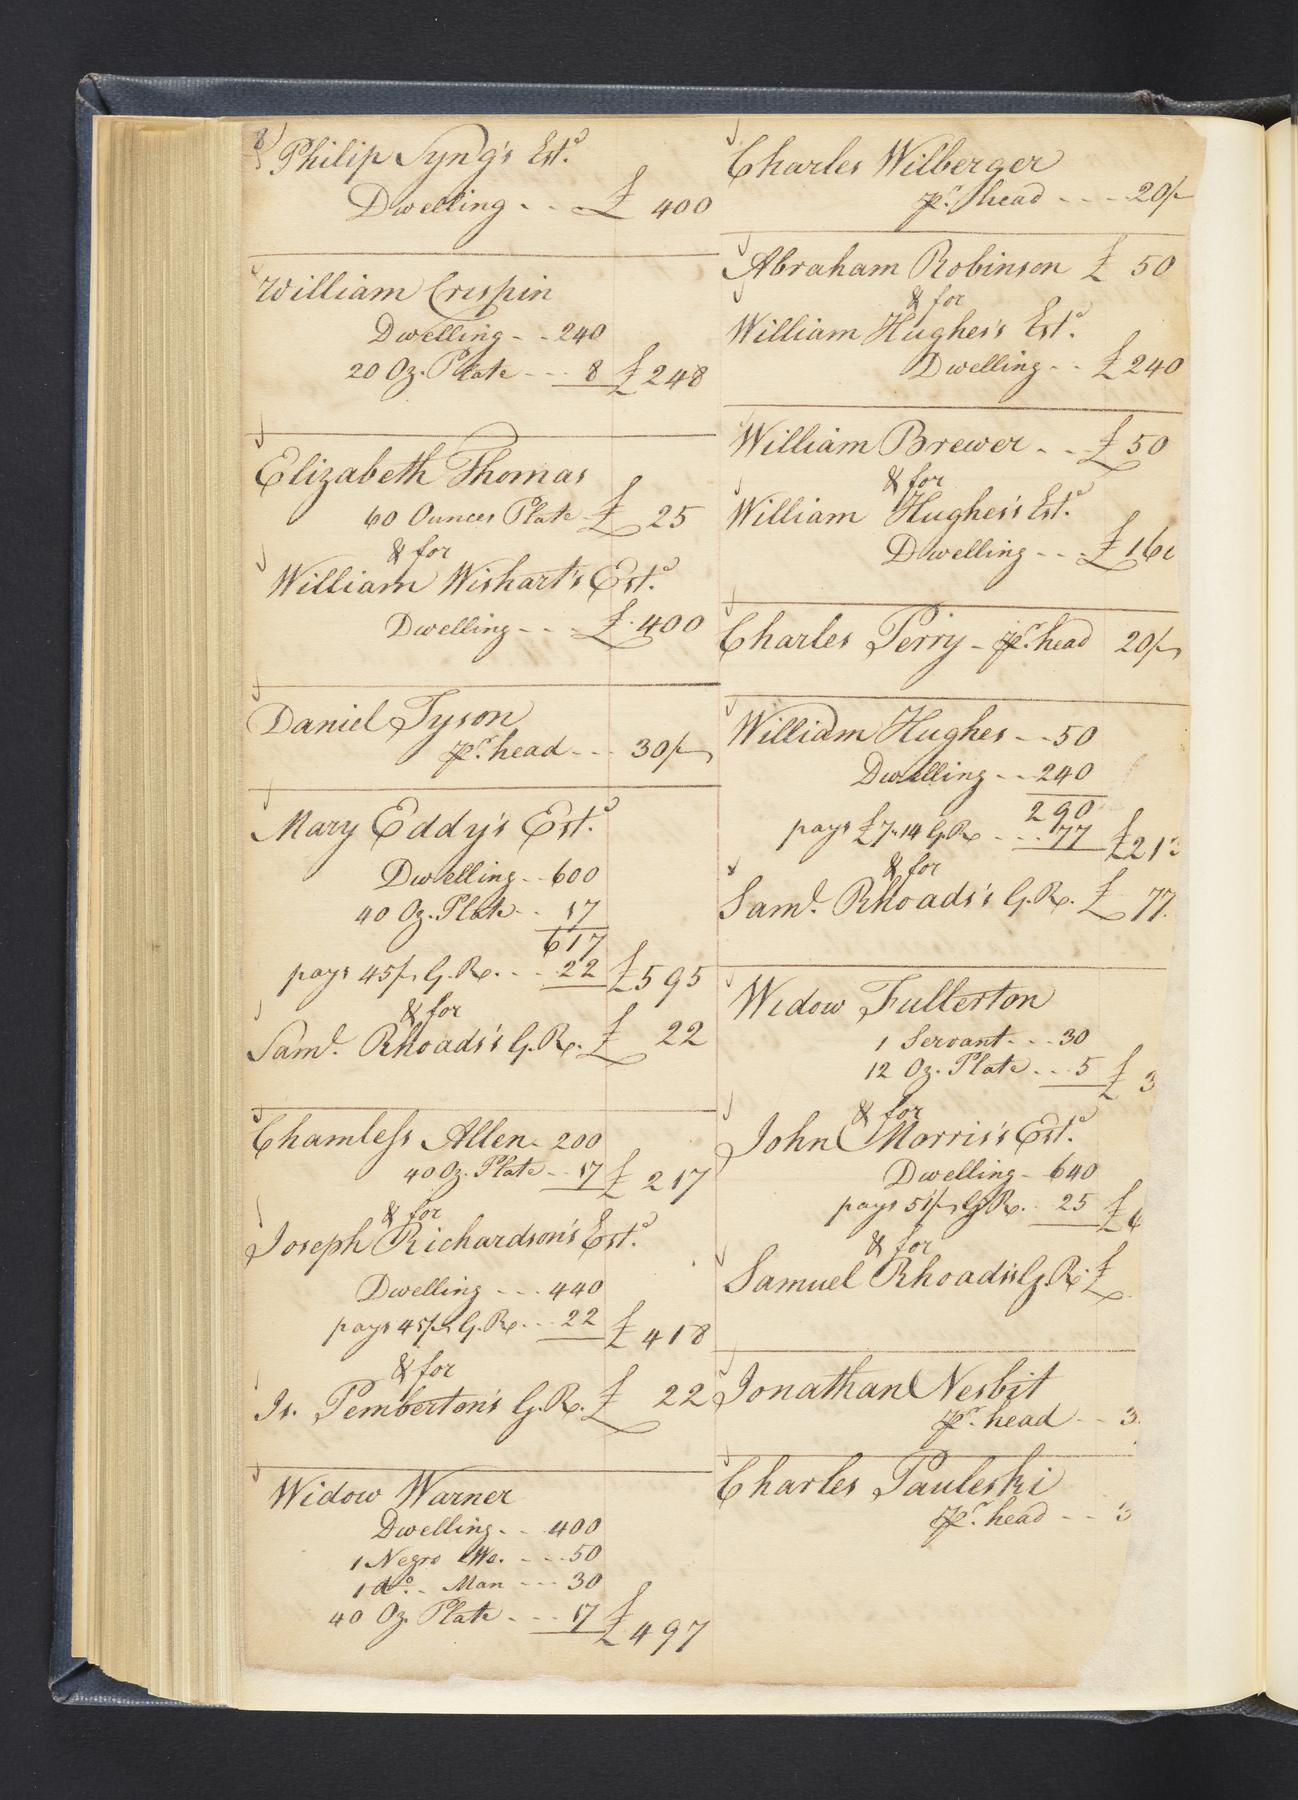 8)
Philip Syng's Estd.
Dwelling - - £ 400
William Crispin
Dwelling - - 240
20 Oz. Plate - - - 8 £ 248
Elizabeth Thomas
60 Ounces Plate £ 25
& for
William Wishart's Estd.
Dwelling - - - £ 400
Daniel Tyson
pr. head - - - 30/-
Mary Eddy's Estd.
Dwelling - - 600
40 Oz. Plate - - 17
617
pays 45/- G. R. - - - 22 £ 595
& for
Saml. Rhoads's G. R. £ 22
Chamless Allen - 200
40 Oz. Plate - - 17 £ 217
& for
Joseph Richardson's Estd.
Dwelling - - - 440
pays 45/- G. R. - - - 22 £ 418
& for
Is. Pemberton's G. R. £ 22
Widow Warner
Dwelling - - 400
1 Negro Wo. - - - 50
1 do. - Man - - - 30
40 Oz. Plate - - - 17 £ 497
Charles Wilberger
pr. head - - - - 20/-
Abraham Robinson £ 50
& for
William Hughes's Estd.
Dwelling - - £ 240
William Brewer - - £ 50
& for
William Hughes's Estd.
Dwelling - - - £ 16
Charles Perry - pr. head 20/-
William Hughes - - 50
Dwelling - - 240
290
pays £7.14 G. R. - - - 77 £ 213
& for
Saml. Rhoads's G. R. £ 77.
Widow Fullerton
1 Servant - - - 30
12 Oz. Plate - - - 5 £ 3
& for
John Morris's Estd.
Dwelling - 640
pays 51/- G. R. - 25 £ 6
& for
Samuel Rhoads's G. R. £
Jonathan Nesbit
pr. head - - 3
Charles Pauleski
pr. head - - 3